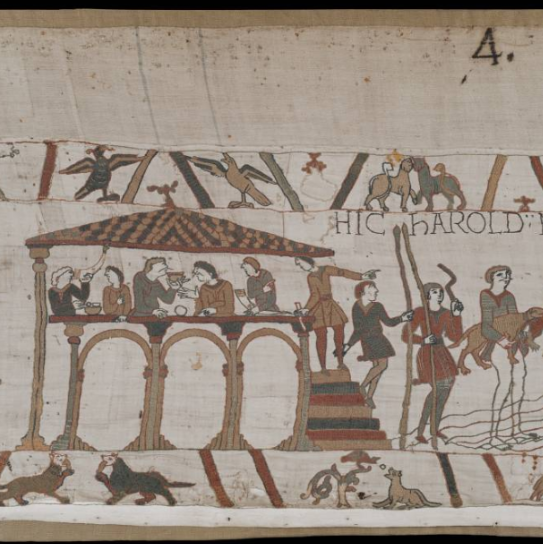 4.
HIC HAROLD: